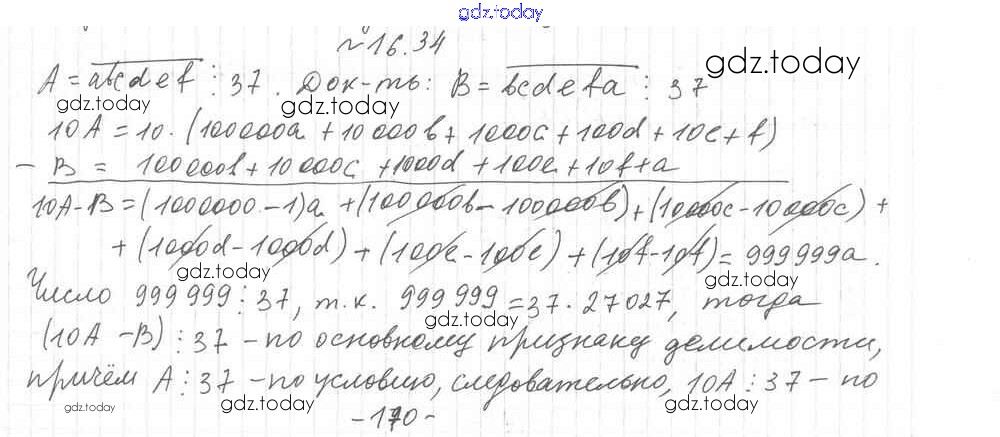 gdz.today
№ 16.34
A = abcdef ⋮ 37. Док-ть: B = bcdefa ⋮ 37
gdz.today
gdz.today
gdz.today
10A = 10·(100000a + 10000b + 1000c + 100d + 10e + f)
− B = 100000b + 10000c + 1000d + 100e + 10f + a
10A − B = (1000000 − 1)a + (100000b − 100000b) + (10000c − 10000c) +
+ (1000d − 1000d) + (100e − 100e) + (10f − 10f) = 999999a.
gdz.today
gdz.today
Число 999 999 ⋮ 37, т.к. 999 999 = 37 · 27027, тогда
gdz.today
(10A − B) ⋮ 37 − по основному признаку делимости,
причём A ⋮ 37 − по условию, следовательно, 10A ⋮ 37 − по
gdz.today
gdz.today
gdz.today
-170-